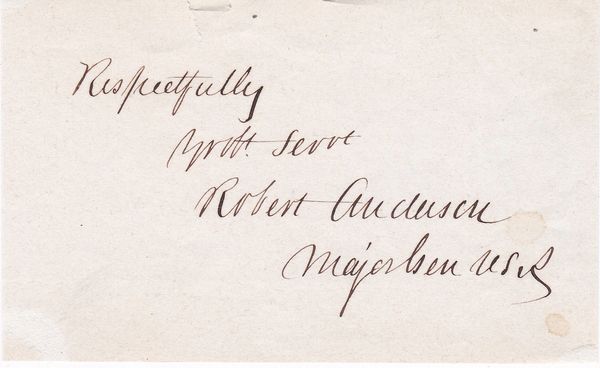 Respectfully
Yr obt. Servt
Robert Anderson
Major Gen U.S.A